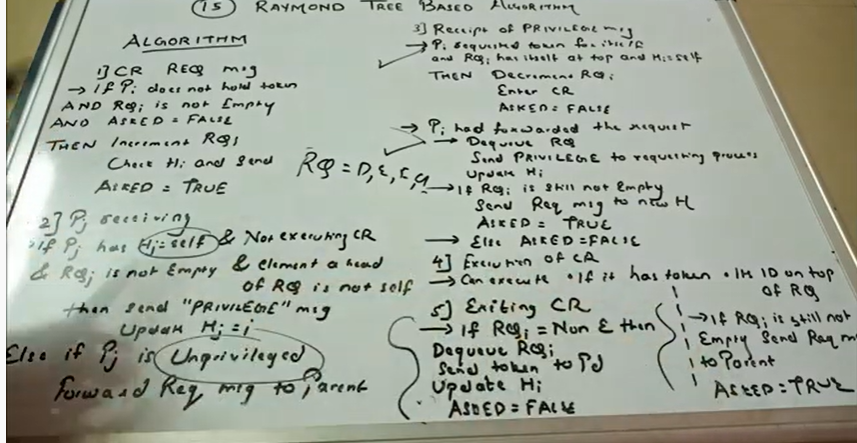 15 RAYMOND TREE BASED ALGORITHM
ALGORITHM
1] CR REQ msg
→ If Pi does not hold token
AND RQi is not Empty
AND ASKED = FALSE
THEN Increment RQi
Check Hi and send
ASKED = TRUE
RQ = D, E, E, G
2] Pj receiving
If Pj has Hj = self & Not executing CR
& RQj is not Empty & element a head
of RQ is not self
then send "PRIVILEGE" msg
Update Hj = i
Else if Pj is Unprivileged
forward Req msg to Parent
3] Receipt of PRIVILEGE msg
→ Pi requested token for itself
and RQi has itself at top and Hi = self
THEN Decrement RQi
Enter CR
ASKED = FALSE
→ Pi had forwarded the request
→ Dequeue RQ
Send PRIVILEGE to requesting process
Update Hi
→ If RQi is still not Empty
Send Req msg to new H
ASKED = TRUE
→ Else ASKED = FALSE
4] Execution of CR
→ Can execute • If it has token • It ID on top
of RQ
5] Exiting CR
→ If RQi = Non E then
Dequeue RQi
Send token to PJ
Update Hi
ASKED = FALSE
→ If RQi is still not
Empty Send Req m
to Parent
ASKED = TRUE